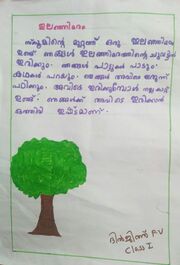 ഇലഞ്ഞിമരം
സ്കൂളിന്റെ മുറ്റത്ത് ഒരു ഇലഞ്ഞിമരം
ഉണ്ട് ഞങ്ങൾ ഇലഞ്ഞിമരത്തിന്റെ ചുവട്ടിൽ
ഇരിക്കും. ഞങ്ങൾ പാട്ടുകൾ പാടും
കഥകൾ പറയും. ഞങ്ങൾ അവിടെ ഇരുന്ന്
പഠിക്കും. അവിടെ ഇരിക്കുമ്പോൾ നല്ല കാറ്റ്
ഉണ്ട്. ഞങ്ങൾക്ക് അവിടെ ഇരിക്കാൻ
ഒത്തിരി ഇഷ്ടമാണ്.
P.V
Class I